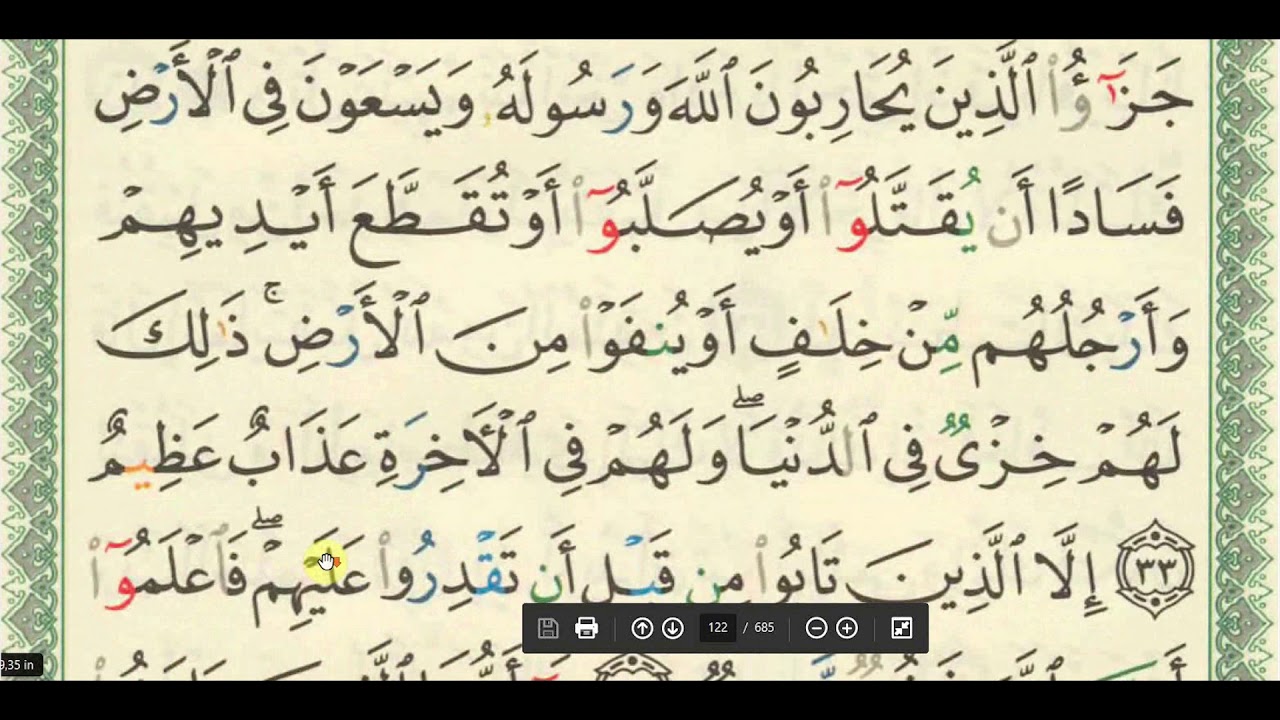 جَزَٰٓؤُا۟ ٱلَّذِينَ يُحَارِبُونَ ٱللَّهَ وَرَسُولَهُۥ وَيَسْعَوْنَ فِى ٱلْأَرْضِ
فَسَادًا أَن يُقَتَّلُوٓا۟ أَوْ يُصَلَّبُوٓا۟ أَوْ تُقَطَّعَ أَيْدِيهِمْ
وَأَرْجُلُهُم مِّنْ خِلَٰفٍ أَوْ يُنفَوْا۟ مِنَ ٱلْأَرْضِ ۚ ذَٰلِكَ
لَهُمْ خِزْىٌ فِى ٱلدُّنْيَا ۖ وَلَهُمْ فِى ٱلْأَخِرَةِ عَذَابٌ عَظِيمٌ
٣٣ إِلَّا ٱلَّذِينَ تَابُوا۟ مِن قَبْلِ أَن تَقْدِرُوا۟ عَلَيْهِمْ ۖ فَٱعْلَمُوٓا۟
122 / 685
9,35 in